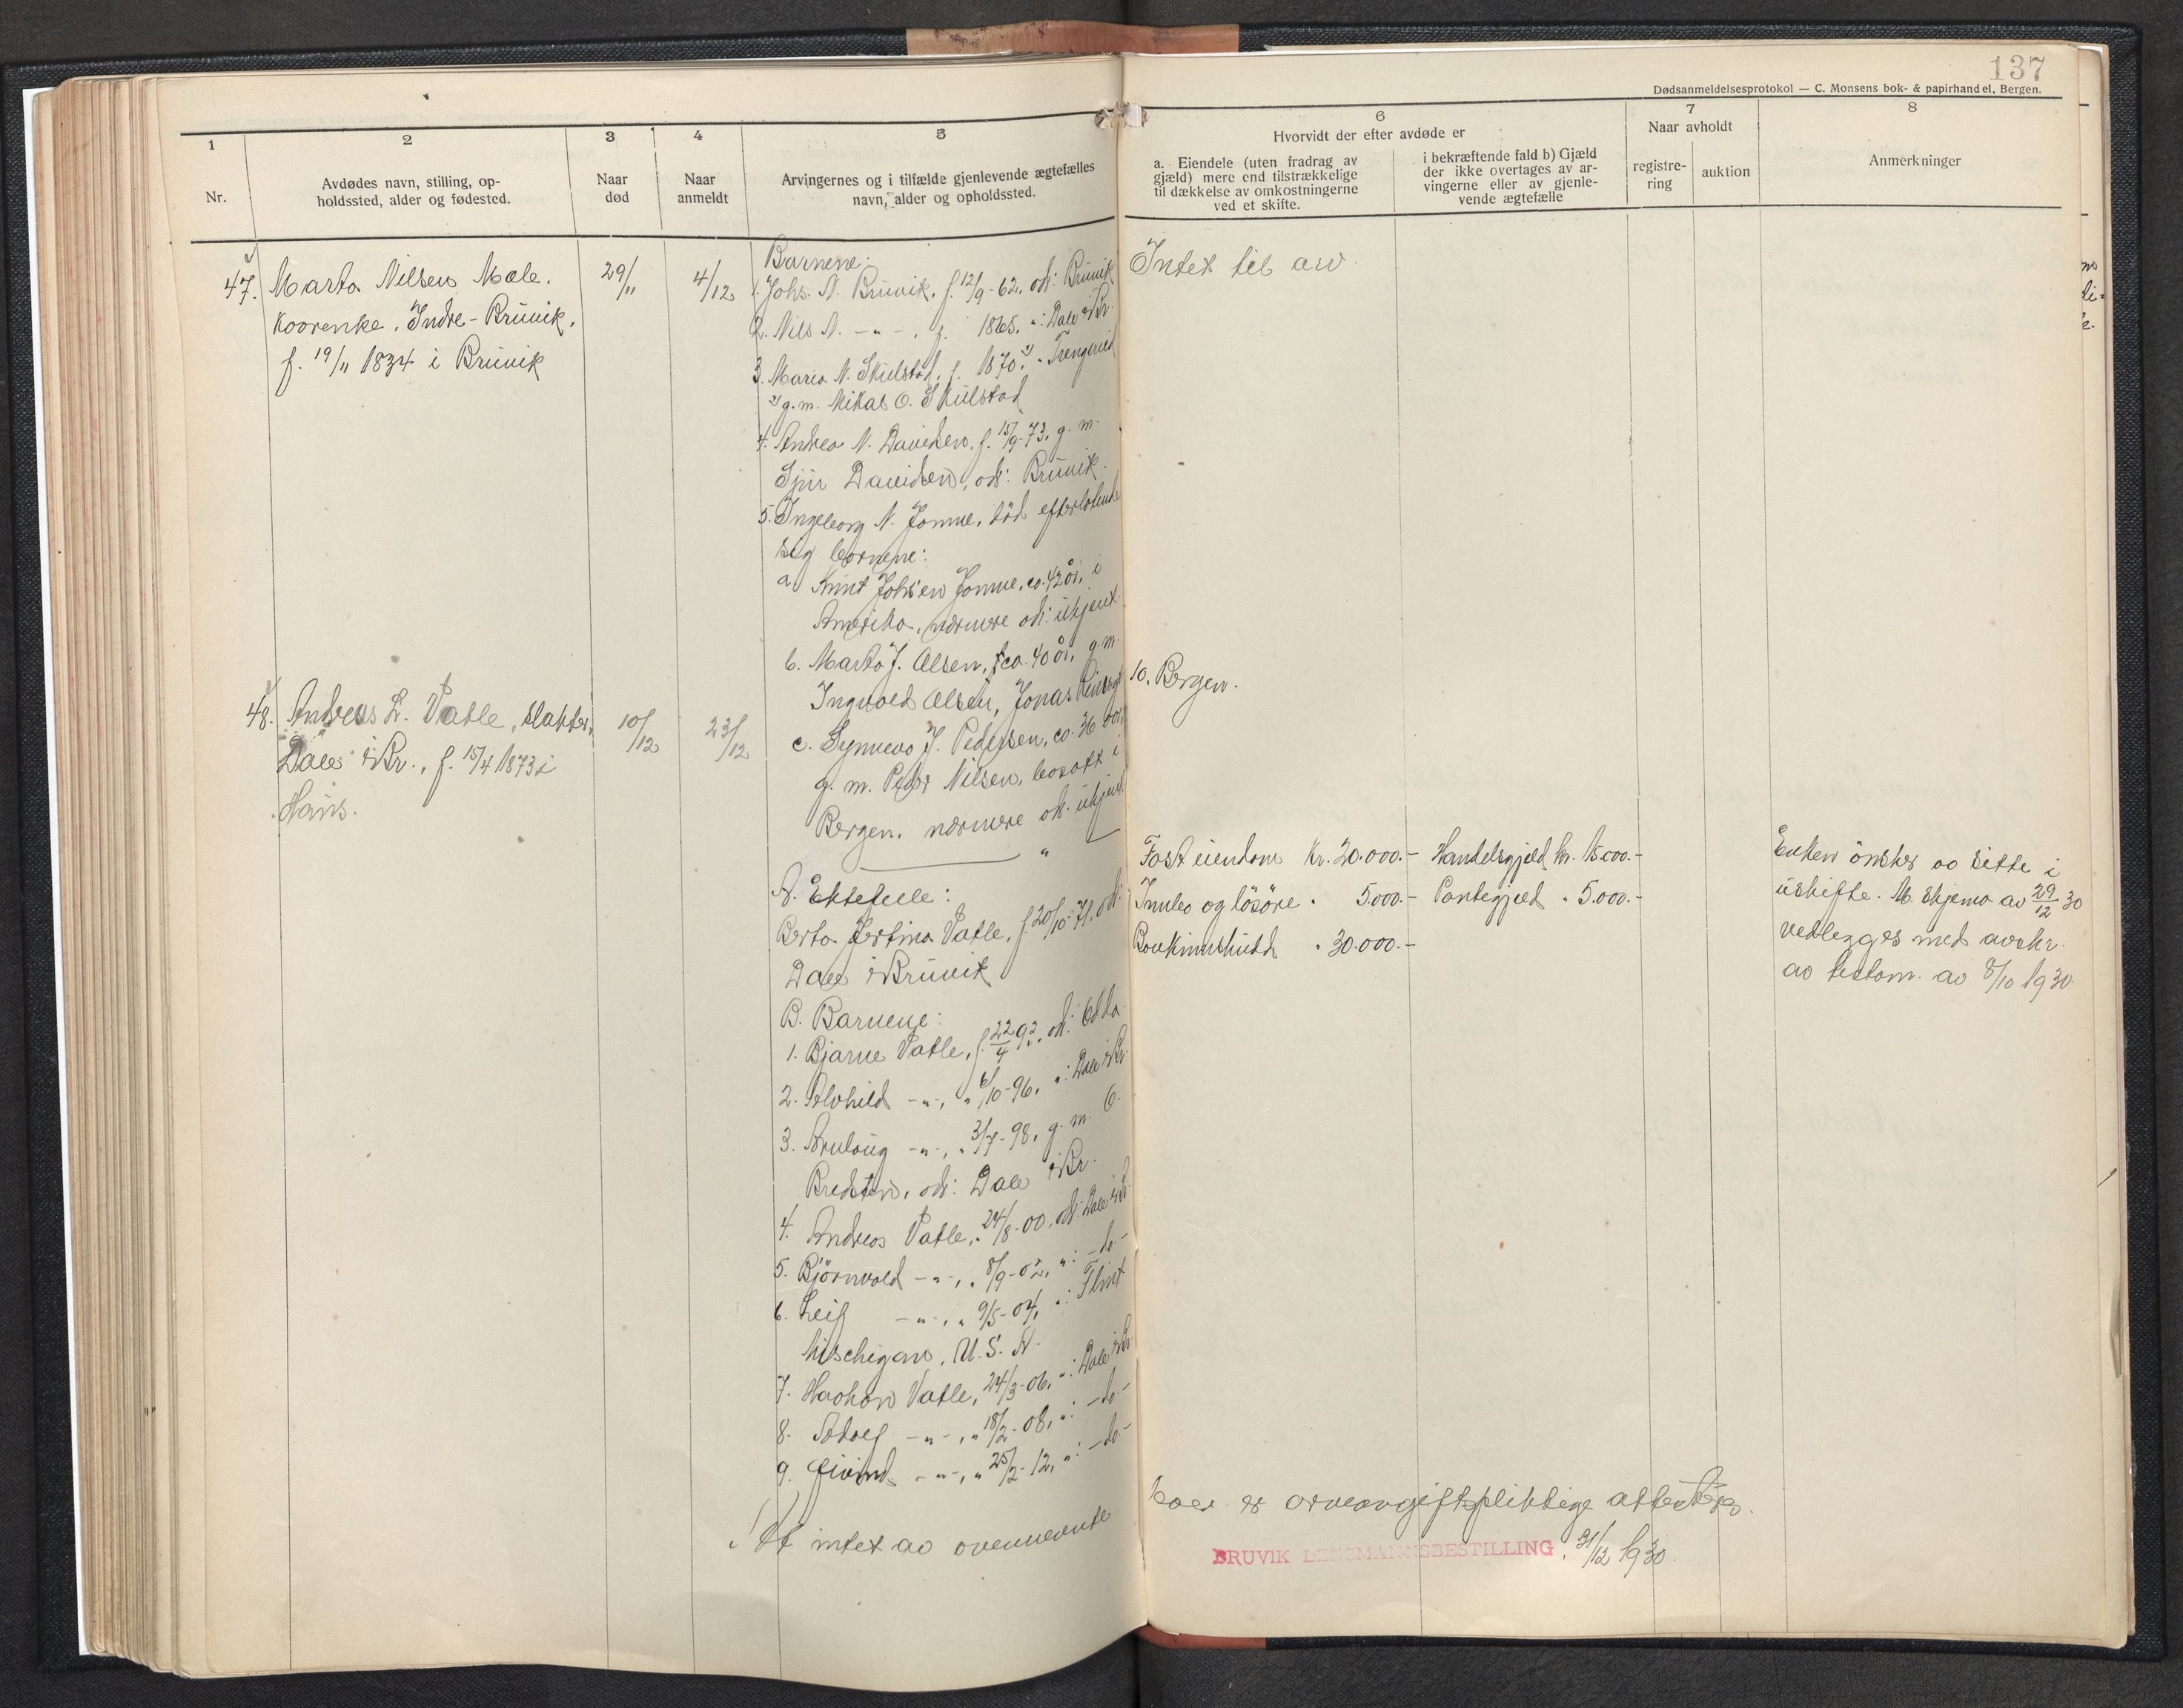 137
Dødsanmeldelsesprotokol — C. Monsens bok- & papirhandel, Bergen.
1
Nr.
2
Avdødes navn, stilling, op-
holdssted, alder og fødested.
3
Naar
død
4
Naar
anmeldt
5
Arvingernes og i tilfælde gjenlevende ægtefælles
navn, alder og opholdssted.
6
Hvorvidt der efter avdøde er
a. Eiendele (uten fradrag av
gjæld) mere end tilstrækkelige
til dækkelse av omkostningerne
ved et skifte.
i bekræftende fald b) Gjæld
der ikke overtages av ar-
vingerne eller av gjenle-
vende ægtefælle
7
Naar avholdt
registre-
ring
auktion
8
Anmerkninger
47. Marta Nilsen Mæle.
Indre-Bruvik,
f. 19/11 1834 i Bruvik
29/11
4/12
Barnene:
1. Johs. N. Bruvik, f. 12/9-62, ods: Bruvik
2. Nils N. -"-, f. 1865, ": Dale i Br.
3. Maria N. Skulstad, f. 1870. x) " Trengereid
x) g.m. Mikal O. Skulstad
4. Andrea N. Davidsen, f. 15/9-73, g. m.
Davidsen, ods: Bruvik.
5. Ingeborg N. Jamne, død efterlatende
seg barnene:
a. Knut Johs'en Jamne, ca. 42 år, i
Amerika, nærmere ods: ukjent.
b. Marta J. Olsen, ca. 40 år, g.m.
Ingvald Olsen, Jonas
10, Bergen.
c. Synneva J. Pedersen, ca. 36 år,
g. m. Peder Nilsen, bosatt i
Bergen, nærmere ods. ukjent
— " —
Intet til arv.
48. Andreas L. Vatle, slakter,
Dale i Br., f. 15/4 1873 i
Haus.
10/12
23/12
A. Ektefelle:
Berta Jertina Vatle, f. 20/10-71, ods:
Dale i Bruvik
B. Barnene:
1. Bjarne Vatle, f. 22/4 92, ods: Odda.
2. Alvhild -"-, " 6/10-96, ": Dale i Br.
3. Arnlaug -"-, " 3/7-98, g. m. O.
Bredsten, ods: Dale i Br.
4. Andreas Vatle, " 24/8-00, ods: Dale i Br.
5. Bjørnvald -"-, " 8/9-02, ": -do-
6. Leif -"-, " 9/5-04, ": Flint
Mischigan, U.S.A.
7. Haakon Vatle, 24/3-06, ": Dale i Br.
8. Adolf -"-, " 18/2-08, ": -do-
9. Eivind -"-, " 25/2-12, ": -do-
Fast eiendom Kr. 20.000.-
Innbo og løsøre " 5.000.-
" 30.000.-
Handelsgjeld kr. 15.000.-
Pantegjeld " 5.000.-
Enken ønsker å sitte i
uskifte. Skjema av 29/12 30
vedlegges med avskr.
av testam. av 8/10 1930.
At intet av ovennevnte
boer er arveavgiftspliktige attesteres.
BRUVIK LENSMANNSBESTILLING, 31/12 1930.